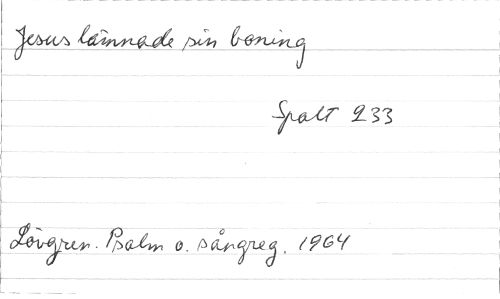 Jesus lämnade sin boning
Spalt 233
Lövgren. Psalm o. sångreg. 1964